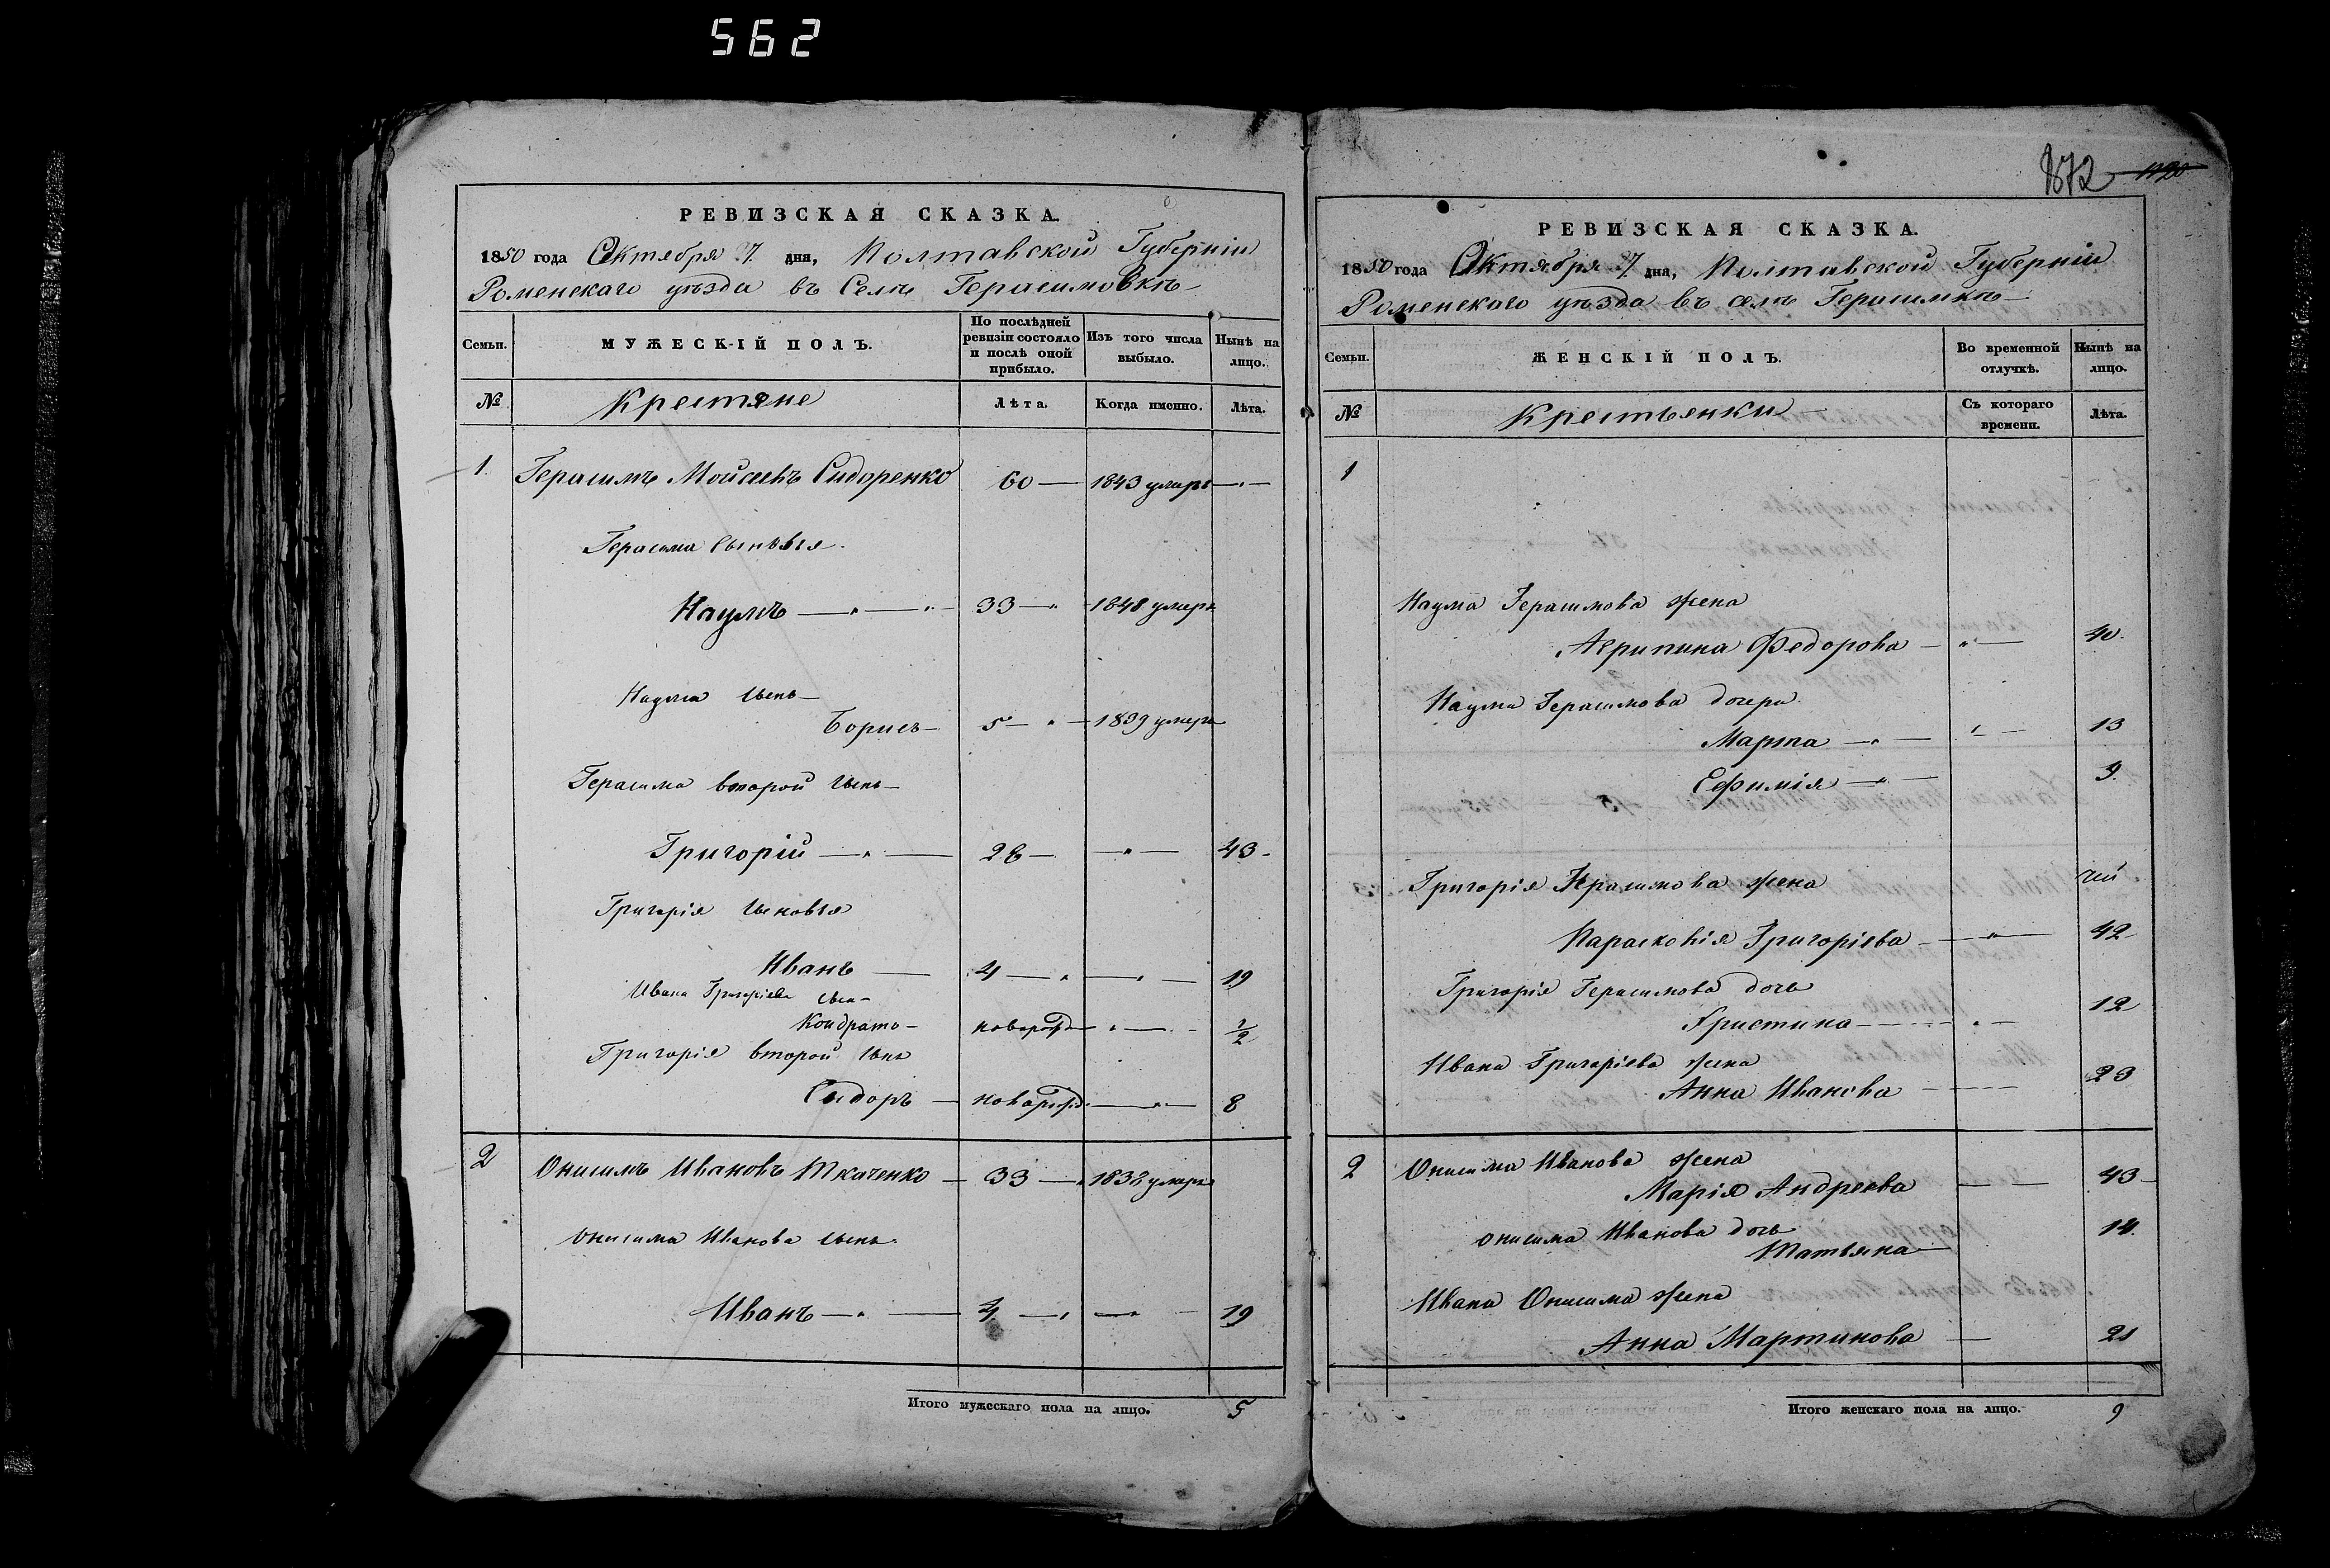 562
РЕВИЗСКАЯ СКАЗКА.
1850 года Октября 27. дня, Полтавской Губерніи
Роменскаго уѣзда въ Селѣ Герасимовкѣ
Семьи.
МУЖЕСК-ІЙ ПОЛЪ.
По послѣдней ревизіи состояло и послѣ оной прибыло.
Изъ того числа выбыло.
Нынѣ на лицо.
№
Крестяне
Лѣта.
Когда именно.
Лѣта.
1. Герасимъ Мойсеевъ Сидоренко 60 — 1843 умеръ — " —
Герасима сыновья
Наумъ — " — " — 33 — " — 1848 умеръ
Наума сынъ —
Борисъ — 5 — " — 1839 умеръ
Герасима второй сынъ —
Григорій — " — 28 — — " — 43 -
Григорія сыновья
Иванъ — 4 — " — " — 19
Ивана Григоріева сынъ —
Кондратъ — новорожд — " — 1/2
Григорія второй сынъ
Сидоръ — новорожд — " — 8
2 Онисимъ Ивановъ Ткаченко — 33 — 1838 умеръ
Онисима Иванова сынъ
Иванъ — " — 4 — " — " — 19
Итого мужескаго пола на лицо. 5
872 1120
РЕВИЗСКАЯ СКАЗКА.
1850 года Октября 27 дня, Полтавской Губерніи
Роменскаго уѣзда въ селѣ Герасимкѣ —
Семьи.
ЖЕНСКІЙ ПОЛЪ.
Во временной отлучкѣ.
Нынѣ на лицо.
№
Крестьянки —
Съ котораго времени.
Лѣта.
1
Наума Герасимова жена
Агрипина Федорова — " — 40.
Наума Герасимова дочери
Марѳа — " — " — 13
Ефимія — " — 9.
Григорія Герасимова жена
Парасковія Григоріева — " — 42
Григорія Герасимова дочь
Христина — " — 12
Ивана Григоріева жена
Анна Иванова — 23
2 Онисима Иванова жена
Марія Андреева — — 43
Онисима Иванова дочь
Татьяна — 14.
Ивана Онисима жена
Анна Мартинова — 21
Итого женскаго пола на лицо. 9